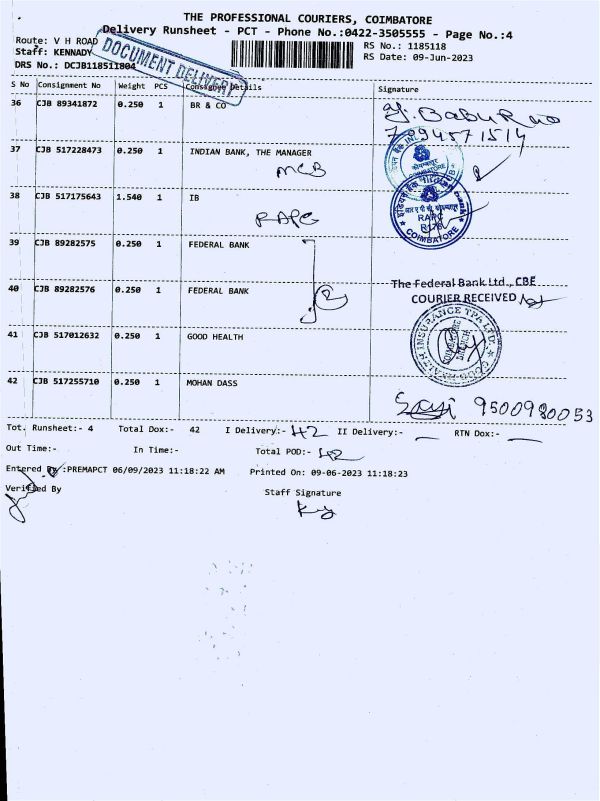 THE PROFESSIONAL COURIERS, COIMBATORE
Delivery Runsheet - PCT - Phone No.:0422-3505555 - Page No.:4
Route: V H ROAD
RS No.: 1185118
Staff: KENNADY
RS Date: 09-Jun-2023
DRS No.: DCJB118511804
DOCUMENT DELIVERY
S No Consignment No Weight PCS Consignee Details Signature
36 CJB 89341872 0.250 1 BR & CO
Y. Babu Rao
7894571514
37 CJB 517228473 0.250 1 INDIAN BANK, THE MANAGER
MCB
38 CJB 517175643 1.540 1 IB
RAPC
RAPC
R176
COIMBATORE
39 CJB 89282575 0.250 1 FEDERAL BANK
40 CJB 89282576 0.250 1 FEDERAL BANK
2
The Federal Bank Ltd., CBE
COURIER RECEIVED
41 CJB 517012632 0.250 1 GOOD HEALTH
GOOD HEALTH INSURANCE TPA LTD.
COIMBATORE
BRANCH
42 CJB 517255710 0.250 1 MOHAN DASS
9500980053
Tot. Runsheet:- 4 Total Dox:- 42 I Delivery:- 42 II Delivery:- RTN Dox:-
Out Time:- In Time:- Total POD:- 42
Entered By :PREMAPCT 06/09/2023 11:18:22 AM Printed On: 09-06-2023 11:18:23
Verified By
Staff Signature